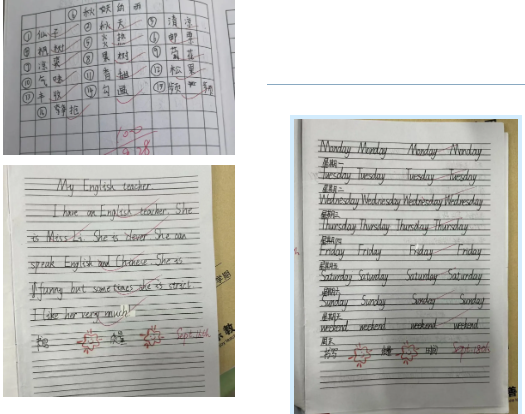 ① 仙子 ② 秋天 ③ 清凉
④ 炎热 ⑥ 邮票
凉爽 ⑧ 果树 ⑨ 菊花
⑩ 气味 ⑪ 香甜 ⑫ 松果
⑬ 丰收 ⑭ 勾画
争抢
100
9.28
My English teacher
I have an English teacher. She
is Miss Li. She is clever. She can
speak English and Chinese. She is
funny but sometimes she is strict.
I like her very much!
书写 质量 Sept. 18th
Monday Monday Monday Monday
星期一
Tuesday Tuesday Tuesday Tuesday
星期二
Wednesday Wednesday Wednesday Wednesday
星期三
Thursday Thursday Thursday Thursday
星期四
Friday Friday Friday Friday
星期五
Saturday Saturday Saturday Saturday
星期六
Sunday Sunday Sunday Sunday
星期天
weekend weekend weekend weekend
周末
书写 质量 Sept. 18th